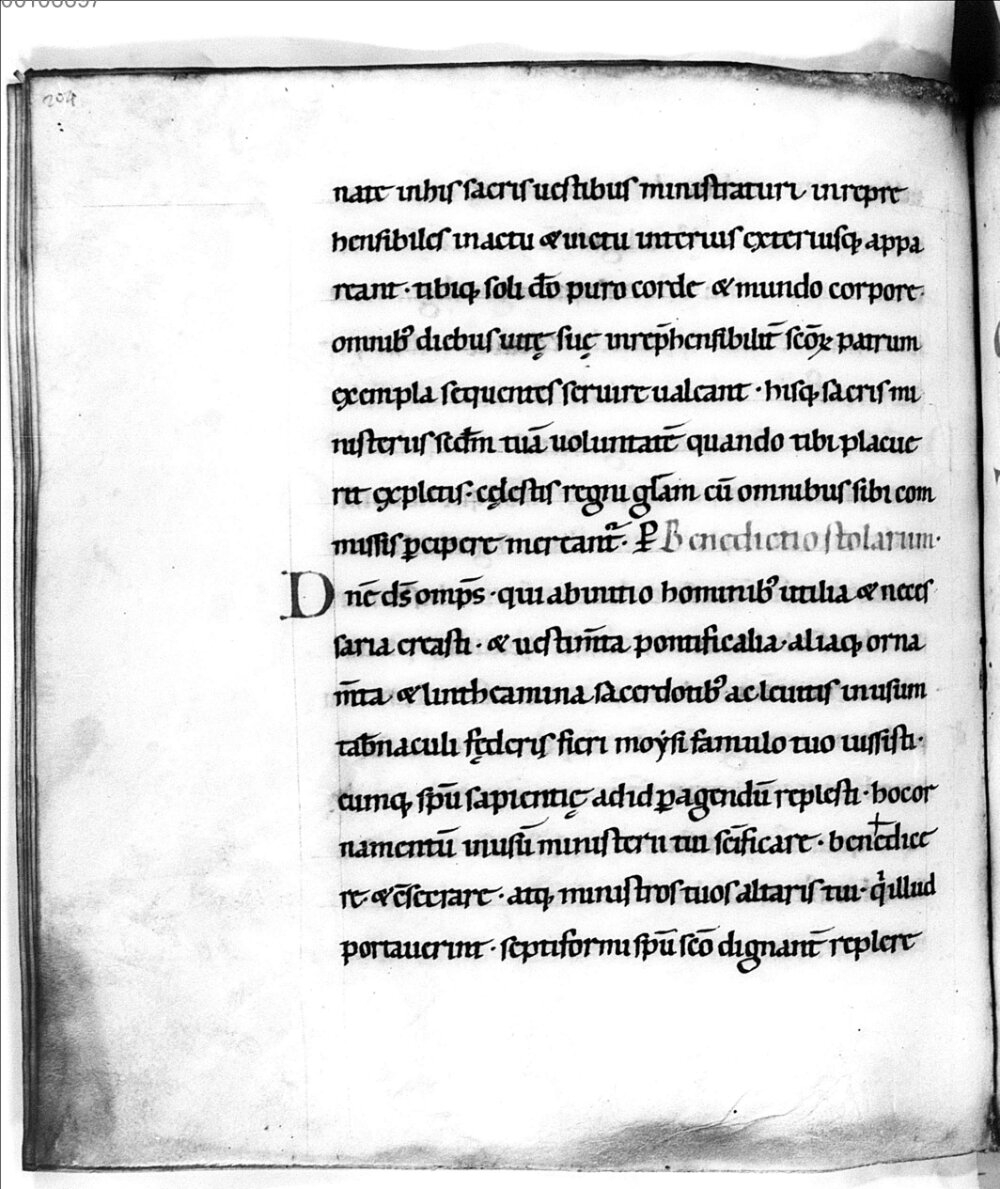 204
nate inhis sacris uestibus ministraturi inrepre
hensibiles in actu & uictu interius exteriusq; appa
reant · tibiq; soli dō puro corde & mundo corpore·
omnib᾽ diebus uitę suę inrep̄hensibilit̄ scōꝝ patrum
exempla sequentes seruire ualeant · hisq; sacris mi
nisteriis scdm̄ tuā uoluntatē quando tibi placue
rit expletis · cęlestis regni gl̄am cū omnibus sibi com
missis ꝑcipere mereant᷑ · ꝑ Benedictio stolarum ·
Dnē ds̄ omp̄s · qui abinitio hominib᾽ utilia & neces
saria creasti · & uestim̄ta pontificalia · aliaq; orna
m̄ta & lintheamina sacerdotib᾽ ac leuitis inusum
tab̄naculi fęderis fieri moẏsi famulo tuo iussisti ·
eumq; sp̄u sapientię adid ꝑagendū replesti · hoc or
namentū inusū ministerii tui sc̄ificare · bene✝dice
re · & c̄secrare · atq; ministros tuos altaris tui · qi illud
portauerint · septiformi sp̄u scō dignant̄ replere